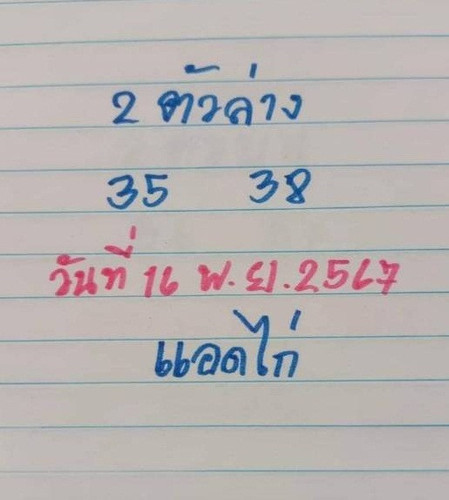 2 ตัวล่าง
35 38
วันที่ 16 พ.ย. 2567
แอดไก่